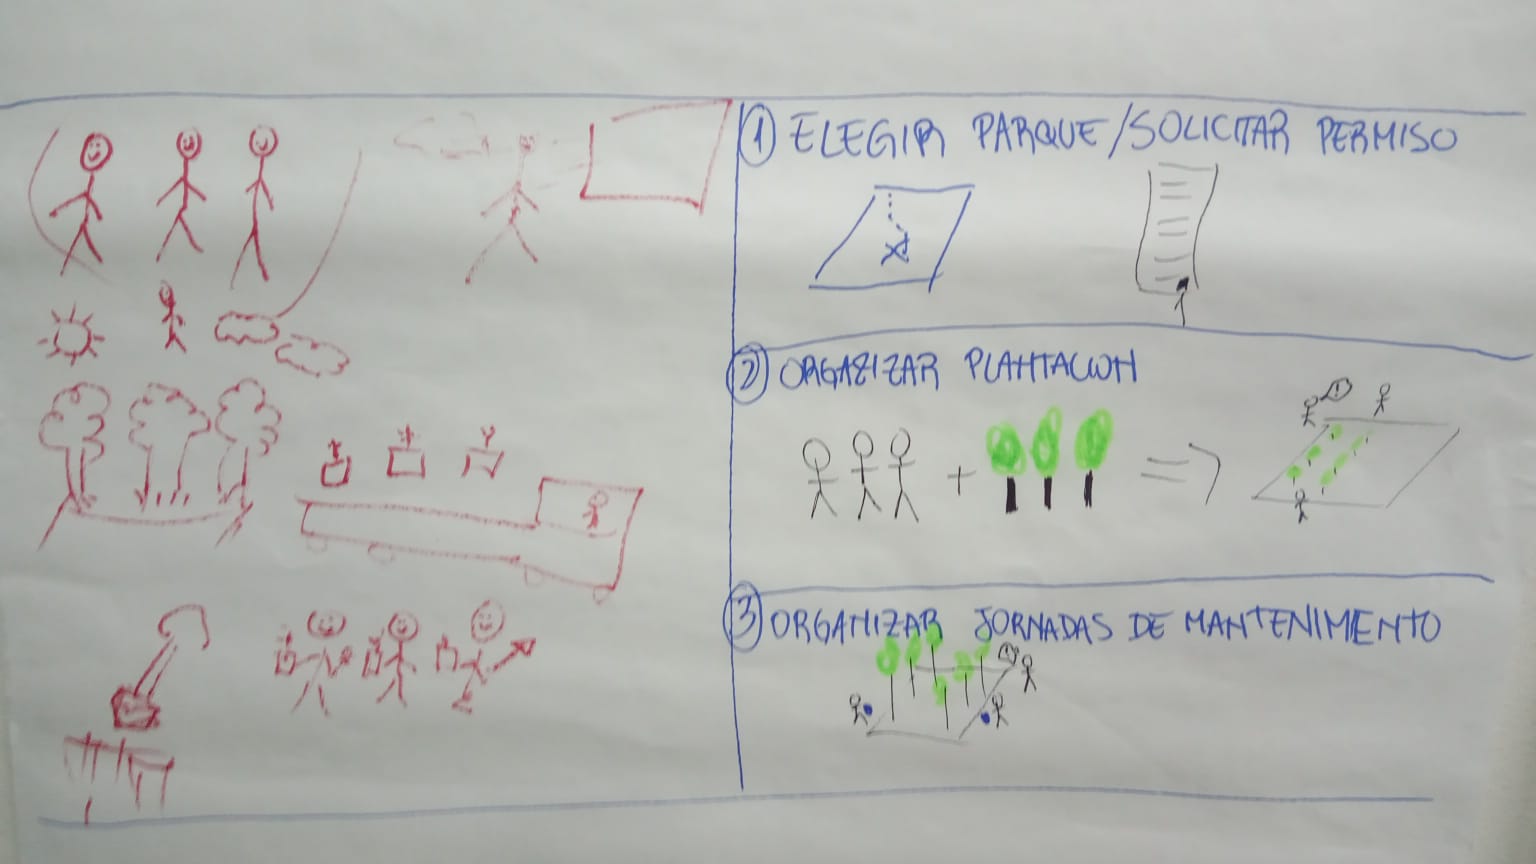 1 ELEGIR PARQUE/SOLICITAR PERMISO
2 ORGAZIZAR PLANTACION
3 ORGANIZAR JORNADAS DE MANTENIMIENTO